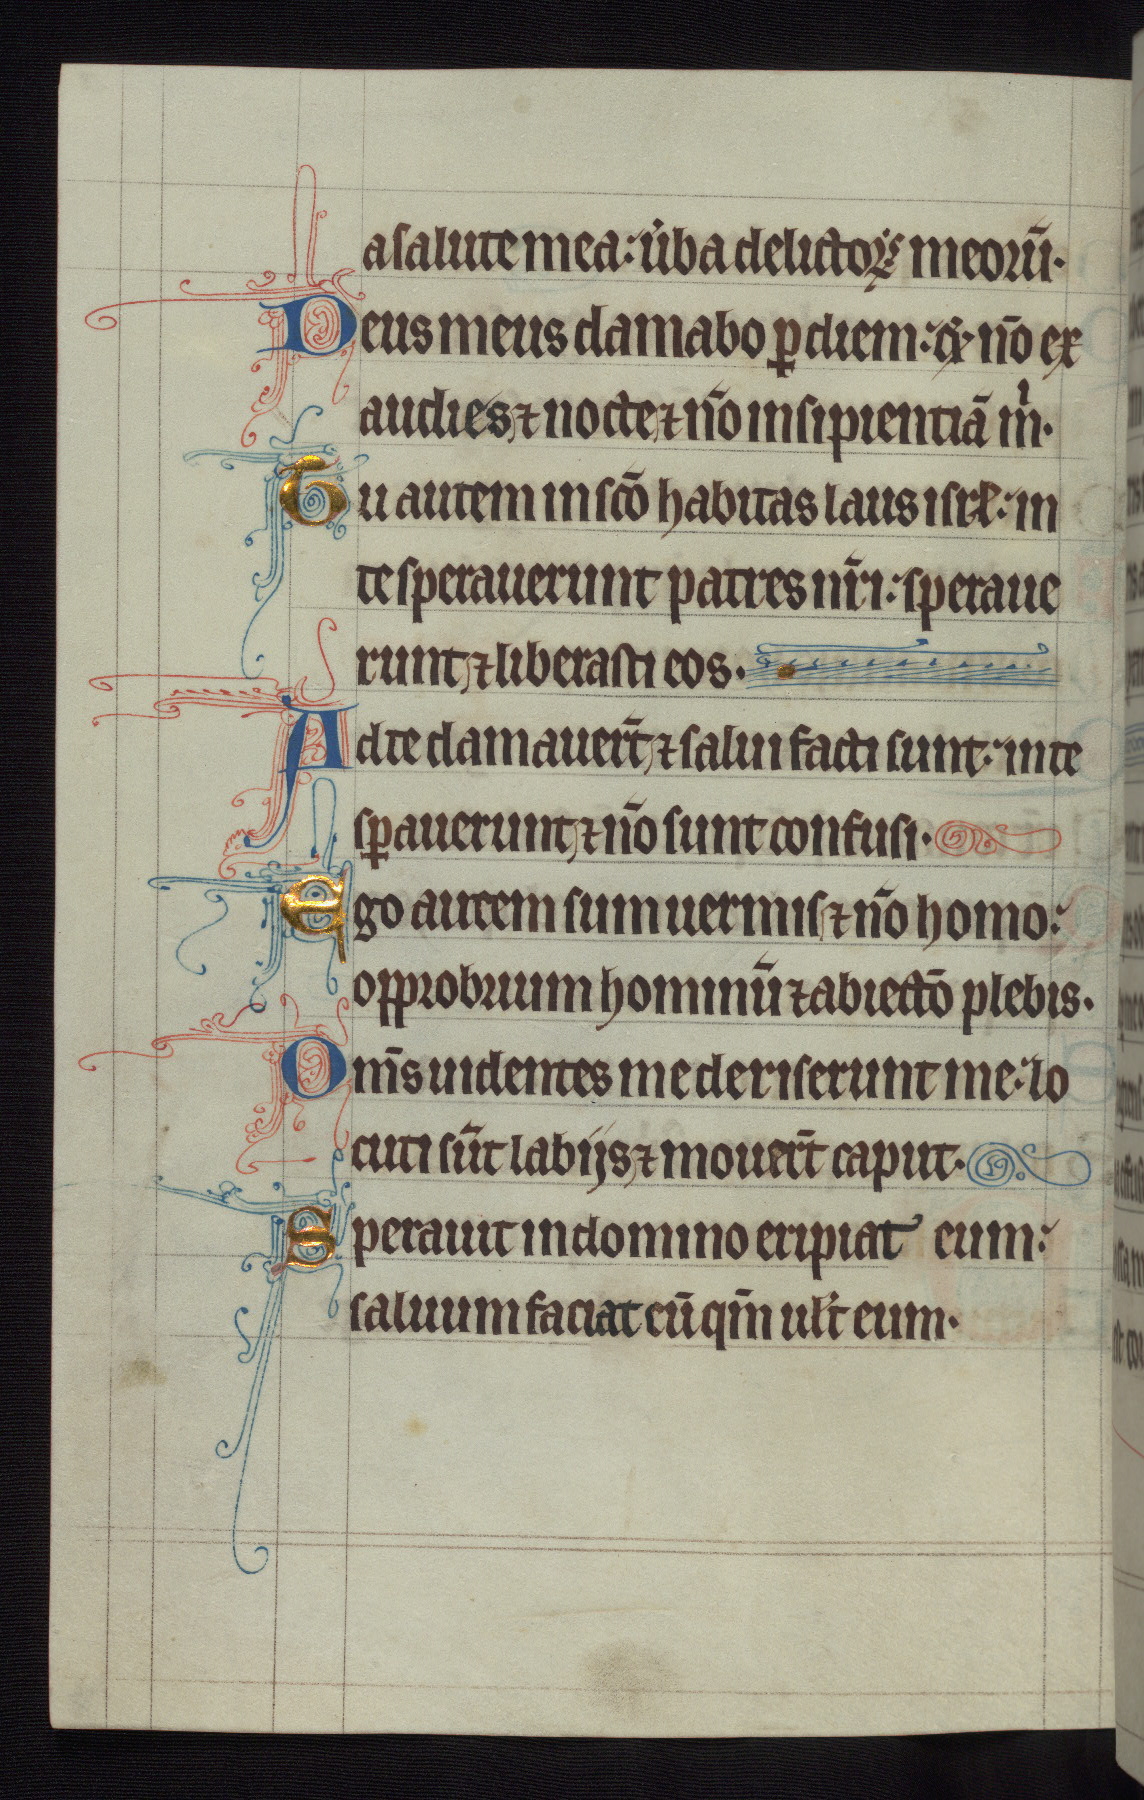 a salute mea: ůba delictoꝝ meorū.
Deus meus clamabo ꝑ diem: ⁊ nō ex
audies ⁊ nocte ⁊ nō insipientiā m̍.
Tu autem in scō habitas laus isrł: in
te sperauerunt patres nr̄i: speraue
runt ⁊ liberasti eos.
Ad te clamauer̄t ⁊ salui facti sunt: in te
sꝑauerunt ⁊ nō sunt confusi.
Ego autem sum uermis ⁊ nō homo:
opprobrium hominū ⁊ abiectō plebis.
Om̄s uidentes me deriserunt me: lo
cuti sūt labijs ⁊ mouer̄t caput.
Sperauit in domino eripiat eum:
saluum faciat eū qm̄ uult eum.